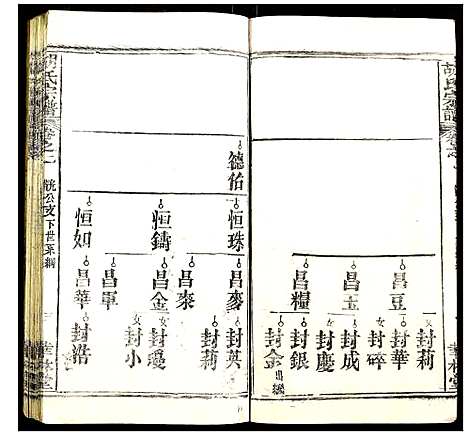 胡氏宗譜
卷之
昌豆
昌玉
昌糧
女封莉
封華
女封碎
封成
封慶
封銀
女封金出繼
德佑
恒珠
恒鑄
恒如
昌麥
昌來
昌金
昌軍
昌華
封英
封莉
女封瓊
女封小
封浩
氏宗譜
卷之
公支下世系綱
華林堂